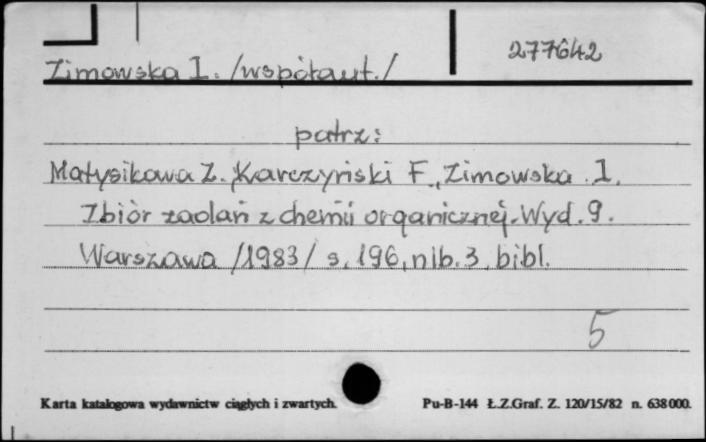 277642
Zimowska I. /współaut./
patrz:
Matysikowa Z. Karczyński F., Zimowska I.
Zbiór zadań z chemii organicznej. Wyd. 9.
Warszawa /1983/ s. 196, nlb. 3, bibl.
5
Karta katalogowa wydawnictw ciągłych i zwartych.
Pu-B-144 Ł.Z.Graf. Z. 120/15/82 n. 638000.